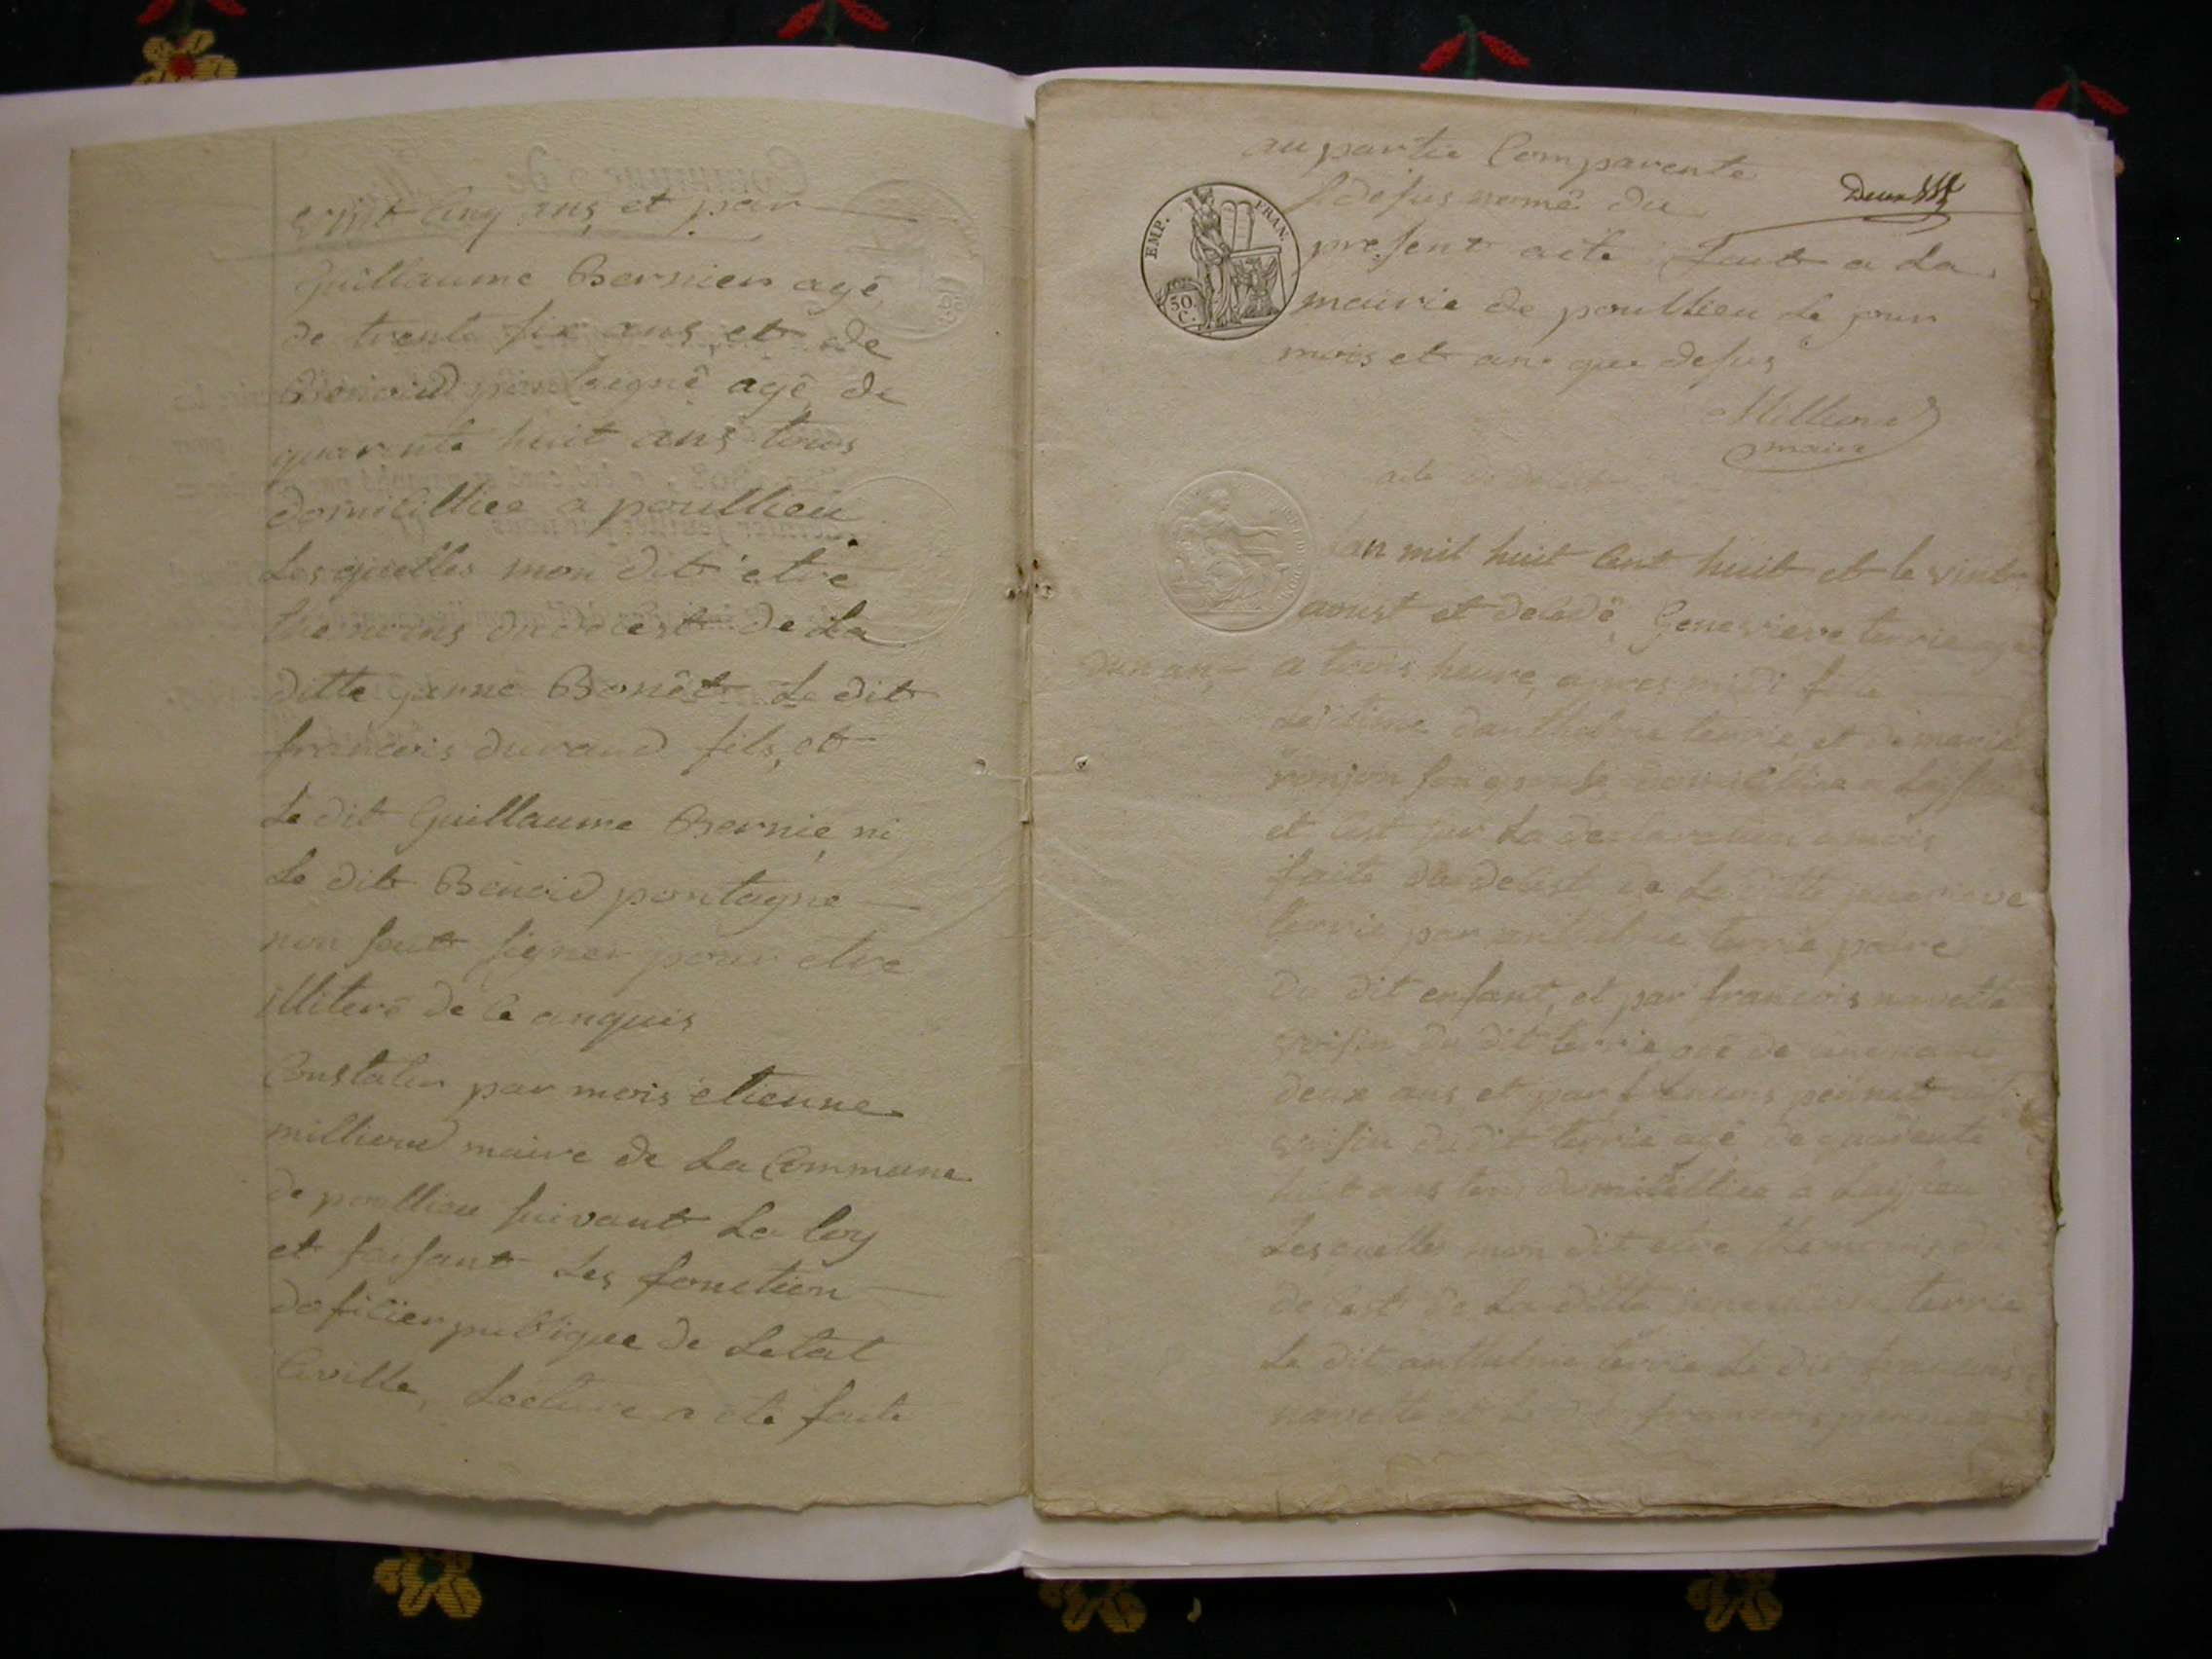 vint cinq ans et par
guillaume Bernier agé
de trente six ans et de
Benoid agé de
quarente huit ans tous
domicilliee a poullieu
Lesquelles mon dit etre
themoins du decest de La
ditte jane Bonêt Le dit
francois durand fils et
Le dit Guillaume Bernie ni
Le dit Benoid pontagne
non seut signer pour etre
illiteré de ce anquis
Constater par mois etienne
milliend maire de La Commune
de poullieu suivant La loy
et faisant Les fonction
doficier publique de Letat
Civille, Lecture a ete faite
au partie Comparente
Deux
si desus nomé du
present acte fait a La
mairie de poullieu Le jour
mois et ans que desus
maire
EMP. FRAN.
50. C.
acte de decest
Lan mil huit Cent huit et le vint
aoust et decedé Genevieve terrie agé
dun an a trois heure apres midi fille
Lesitime danthelme terrie et de marie
son epouse domicilliee a
et Cest sur La declaration a mois
faite du decest de La ditte genevieve
terrie par anthelme terrie paire
du dit enfant, et par francois navette
voisin du dit terrie agé de cinquante
deux ans et par francois
voisin du dit terrie agé de quarente
huit ans tous domicilliee a
Lesquelles mon dit etre themoins du
decest de La ditte genevieve terrie
Le dit anthelme terrie Le dit francois
navette et le dit francois